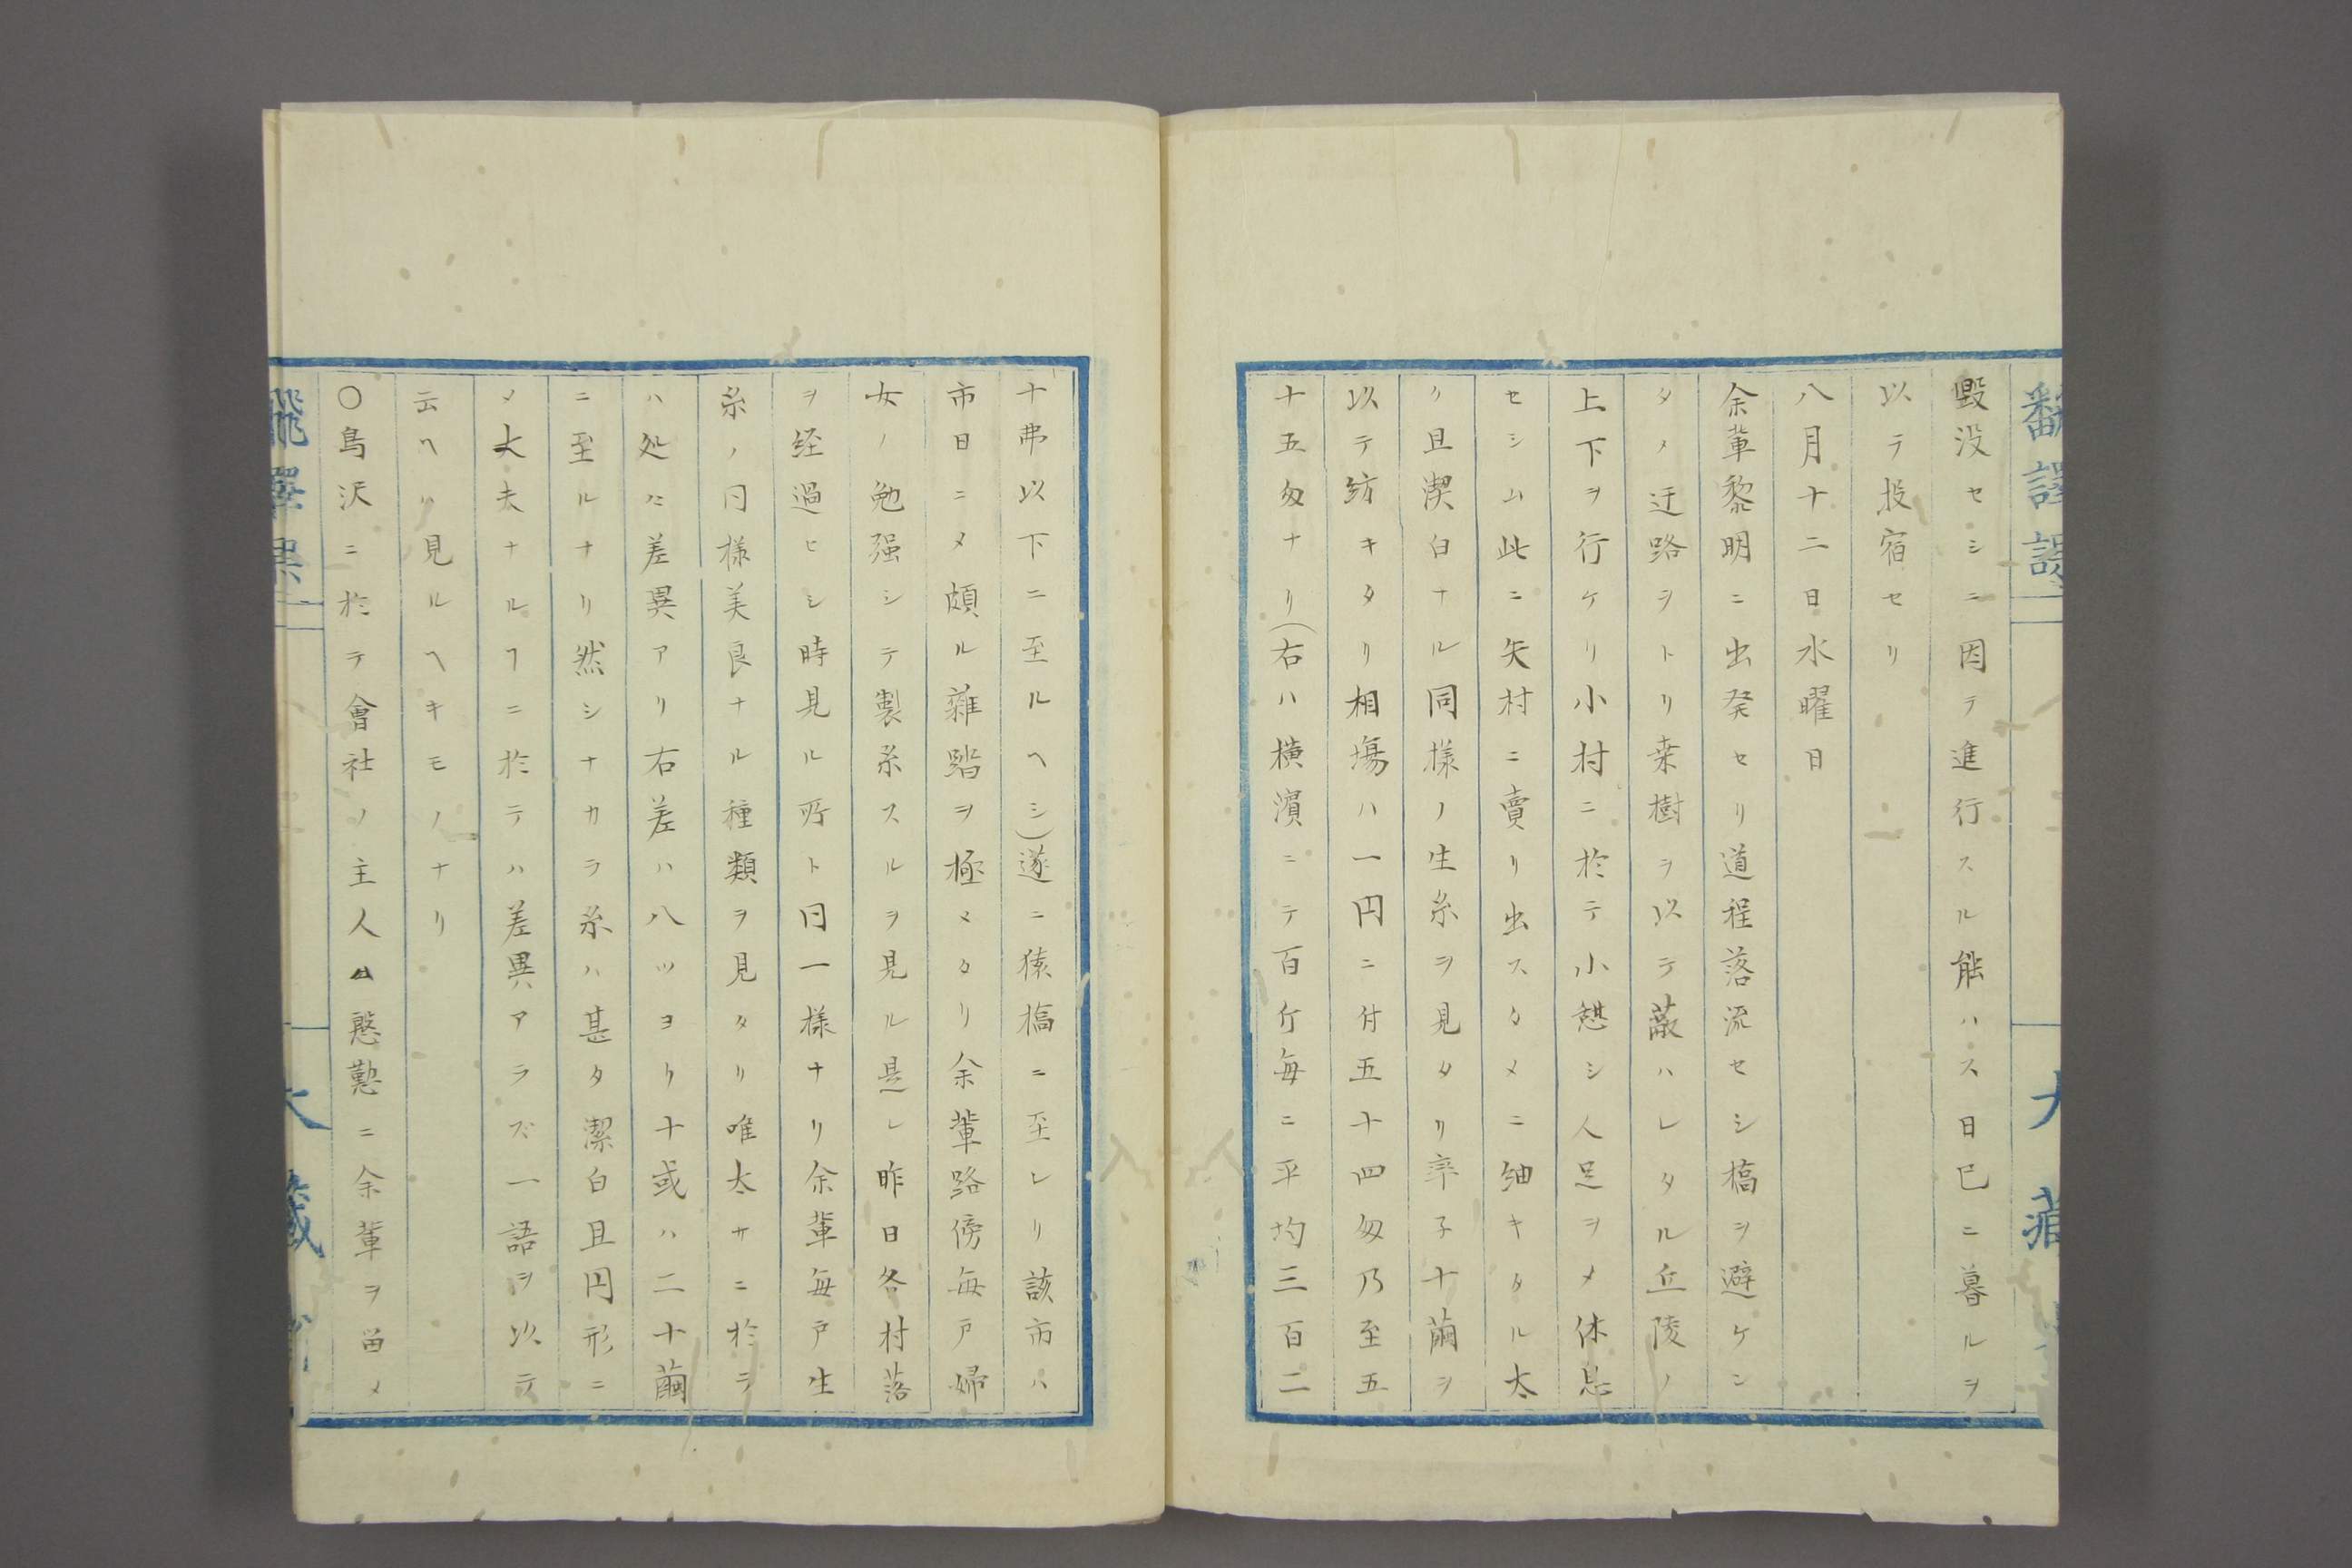 毀没セシニ因テ進行スル能ハス日已ニ暮ルヲ
以テ投宿セリ
八月十二日水曜日
余輩黎明ニ出発セリ道程落流セシ橋ヲ避ケン
タメ迂路ヲトリ桒樹ヲ以テ蔽ハレタル丘陵ノ
上下ヲ行ケリ小村ニ於テ小憩シ人足ヲメ休息
セシム此ニ矢村ニ賣リ出スタメニ紬キタル太
ク且潔白ナル同様ノ生糸ヲ見タリ率子十繭ヲ
以テ紡キタリ相塲ハ一円ニ付五十四匁乃至五
十五匁ナリ(右ハ横濱ニテ百斤毎ニ平均三百二
十弗以下ニ至ルヘシ)遂ニ猿橋ニ至レリ該市ハ
市日ニメ頗ル雜踏ヲ極メタリ余輩路傍毎戸婦
女ノ勉强シテ製糸スルヲ見ル是レ昨日各村落
ヲ経過ヒシ時見ル所ト同一様ナリ余輩毎戸生
糸ノ同様美良ナル種類ヲ見タリ唯太サニ於テ
ハ処々差異アリ右差ハ八ツヨリ十或ハ二十繭
ニ至ルナリ然シナカラ糸ハ甚タ潔白且円形ニ
メ大夫ナルヿニ於テハ差異アラズ一語ヲ以テ
云ヘハ見ルヘキモノナリ
○鳥沢ニ於テ會社ノ主人慇懃ニ余輩ヲ畄メ
翻譯課
大蔵